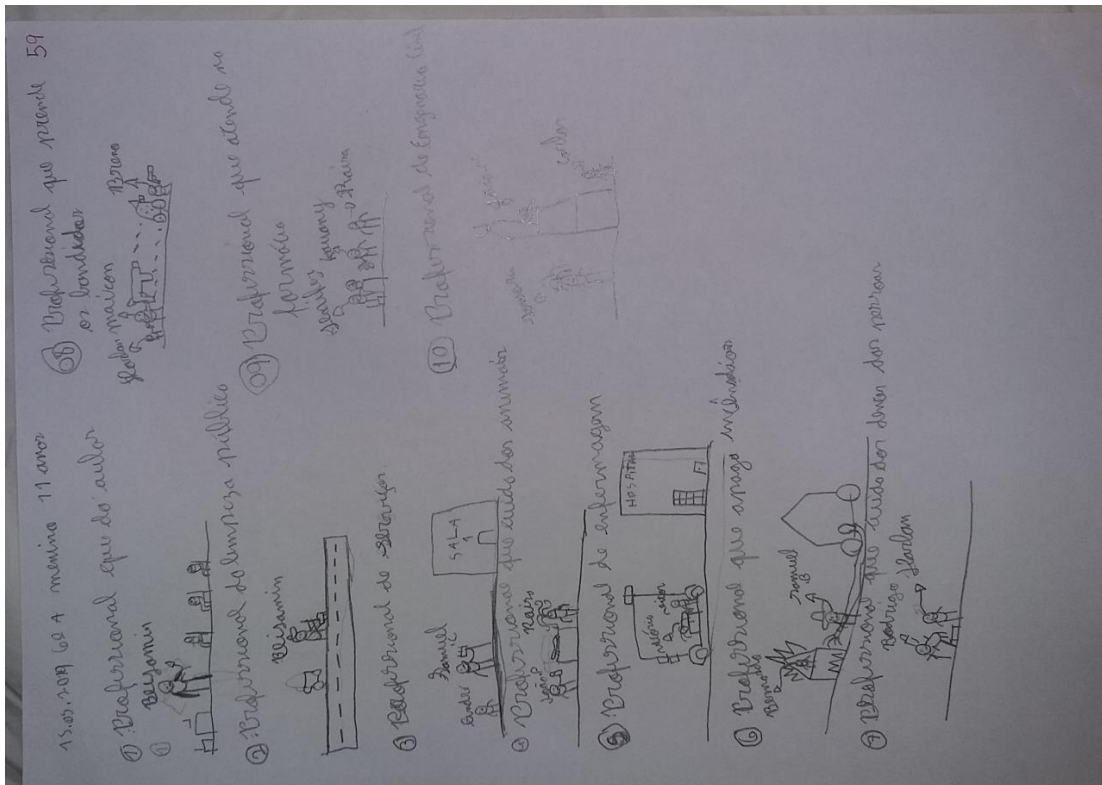 15.03.2019 6º A menino 11 anos
① Profissional que dá aulas
Benjamin
② Profissional da limpeza pública
③ Profissional de serviços
Samuel
SALA
1
④ Profissional que cuida dos animais
João
⑤ Profissional de enfermagem
HOSPITAL
⑥ Profissional que apaga incêndios
Samuel
⑦ Profissional que cuida dos dentes das pessoas
Rodrigo
Harlan
59
08 Profissional que prende
os bandidos
maicon
Breno
09 Profissional que atende na
farmácia
Kauany
Raira
10 Profissional de Engenharia Civil